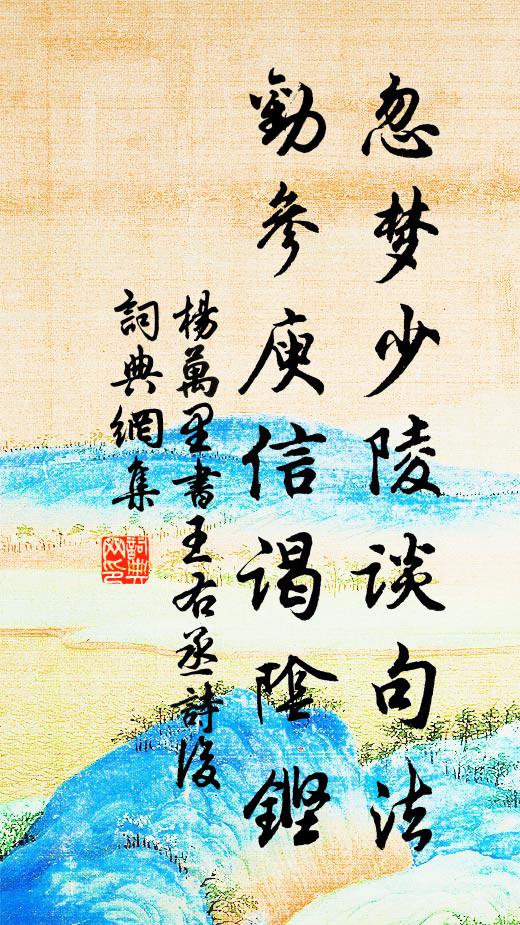 忽梦少陵谈句法
勸参庾信谒陰鏗
楊萬里書王右丞詩後
詞典網集
詞典網印